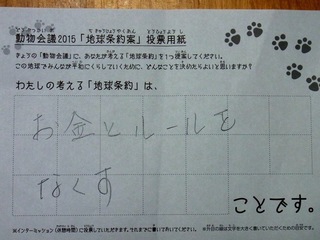 動物会議2015「地球条約案」投票用紙
きょうの「動物会議」に、あなたが考える「地球条約」を1つ提案してください。
この地球でみんなが平和にくらしていくために、どんなことを決めたらよいと思いますか?
わたしの考える「地球条約」は、
お金とルールを
なくす
ことです。
※インターミッション(休憩時間)に投票していただきます。うたまでに書いておいてください。